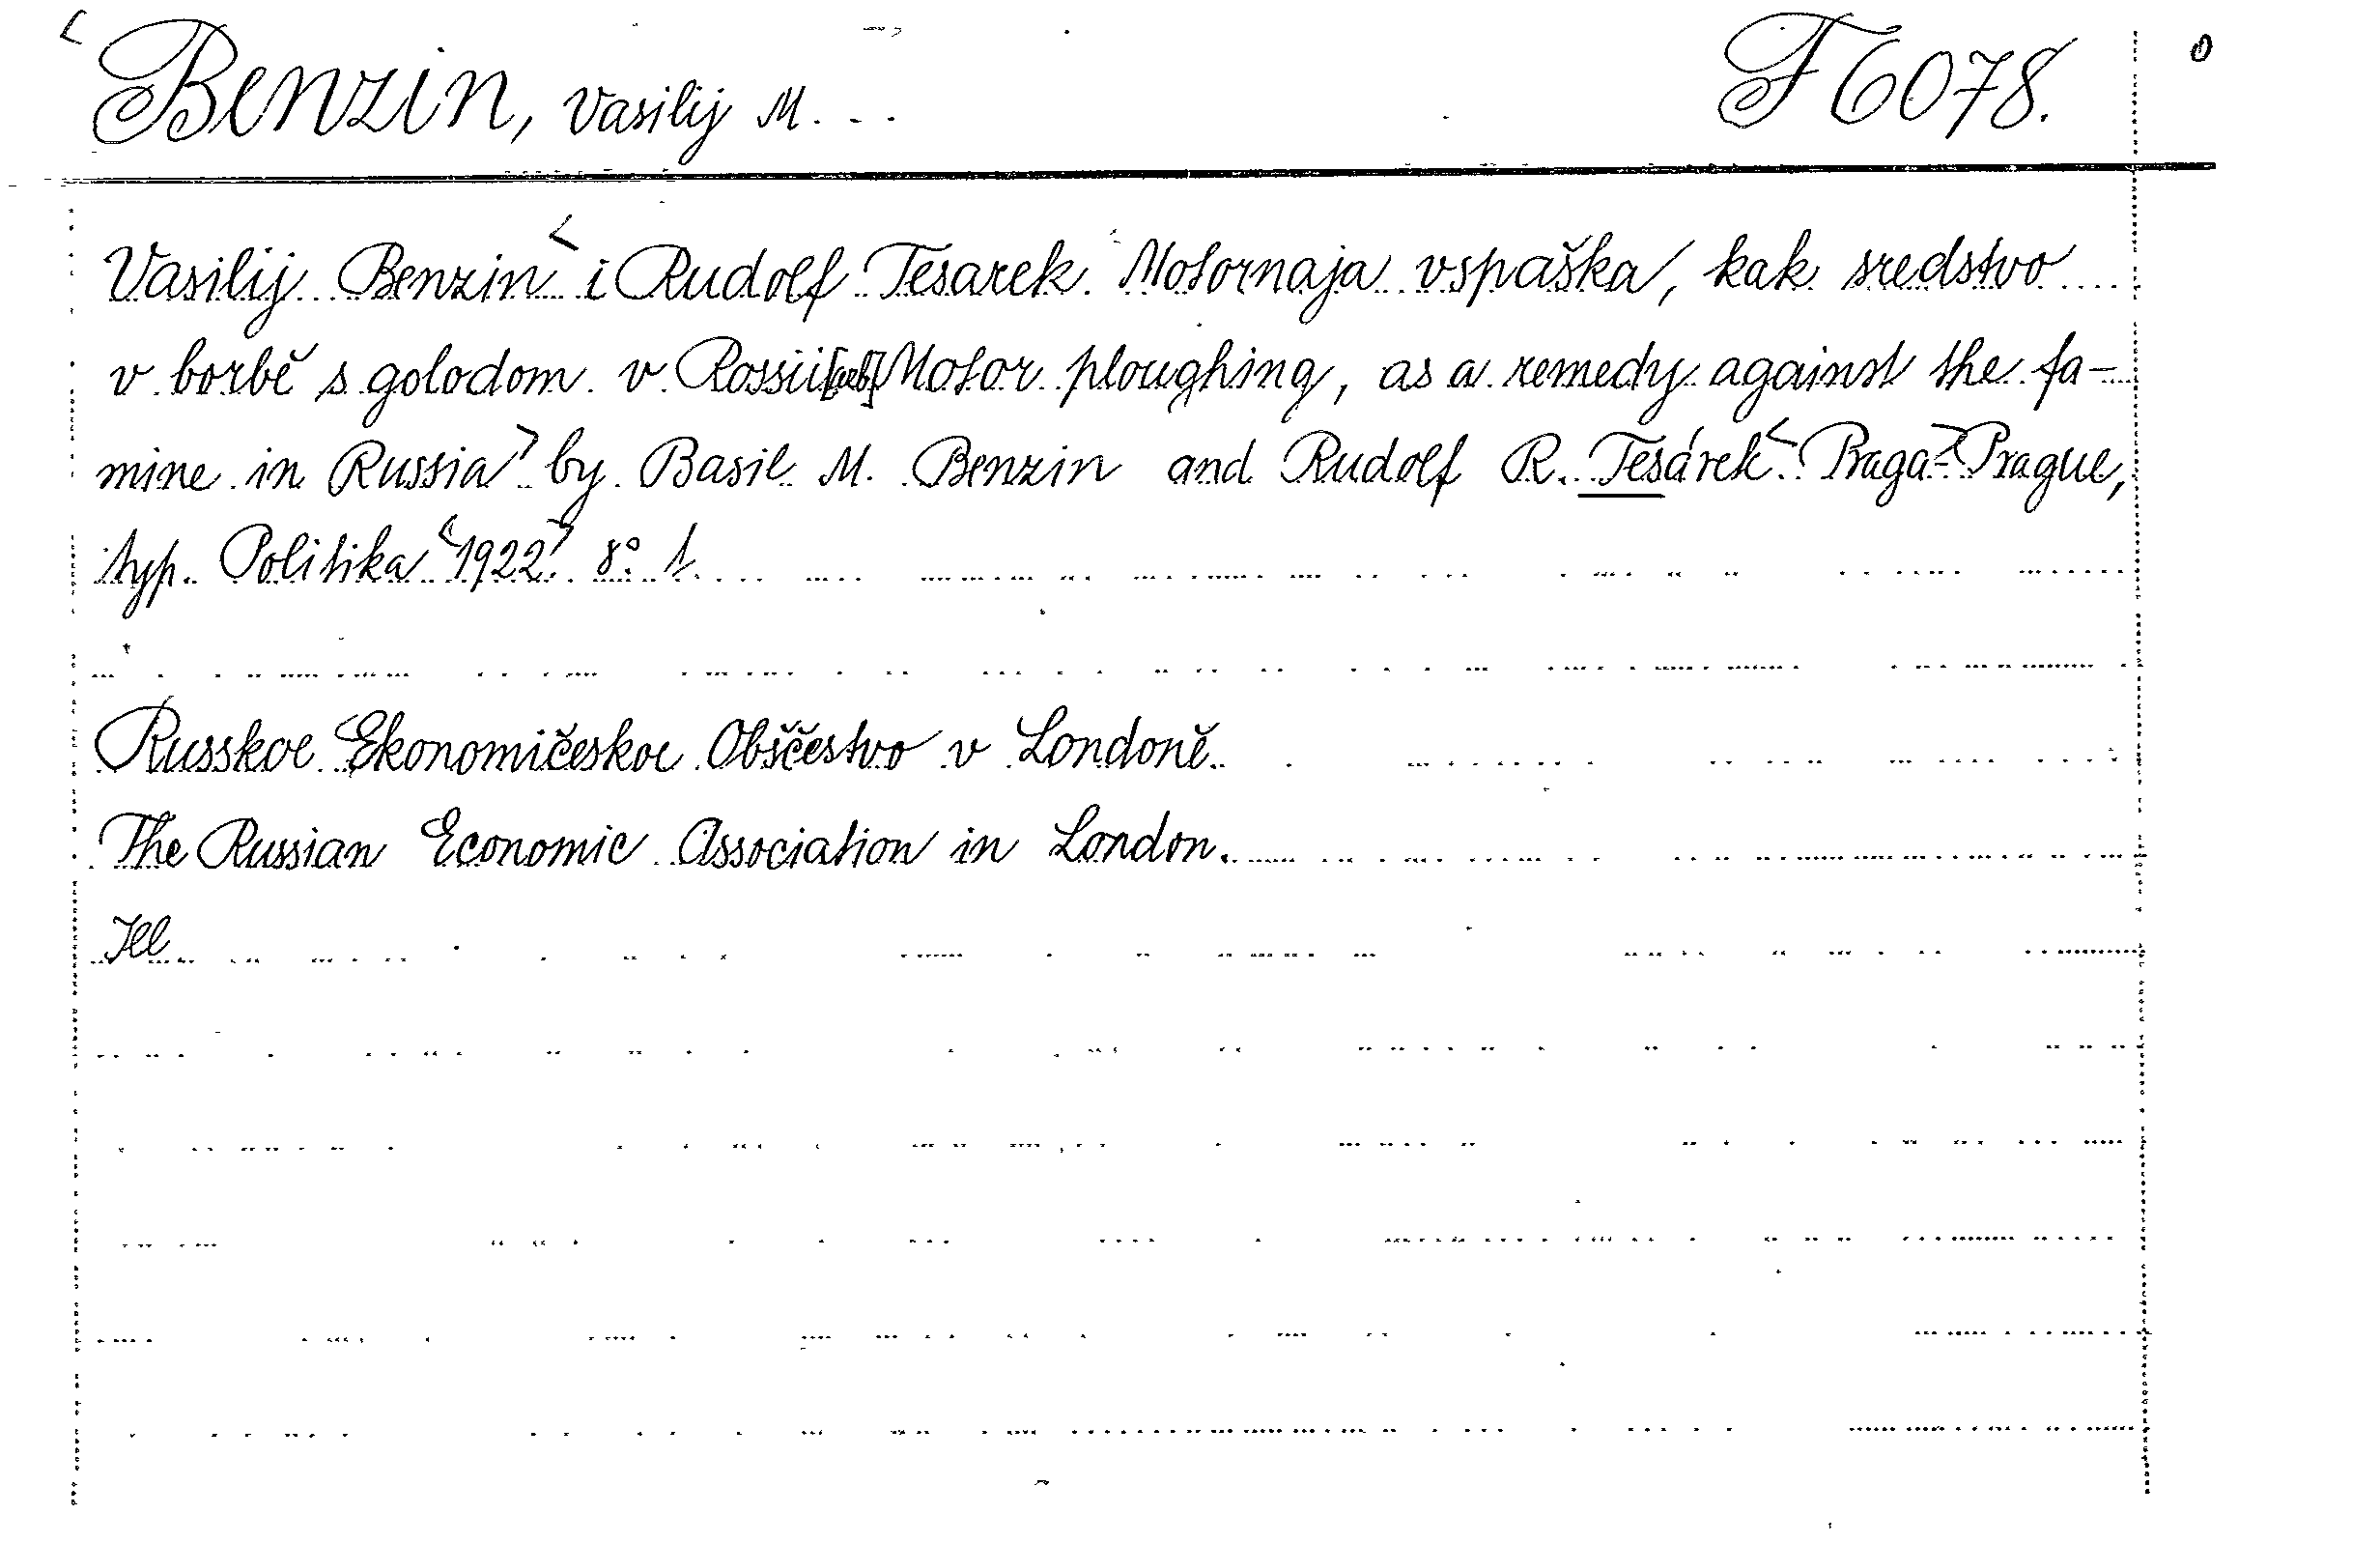 Benzin, Vasilij M... F 6078.
Vasilij Benzin i Rudolf Tesarek. Motornaja vspaška, kak sredstvo
v borbě s golodom v Rossii Motor ploughing, as a remedy against the fa-
mine in Russia by Basil M. Benzin and Rudolf R. Tesárek. Praga-Prague,
typ. Politika 1922. 8° 1.
Russkoe Ekonomičeskoe Obščestvo v Londoně.
The Russian Economic Association in London.
Ill